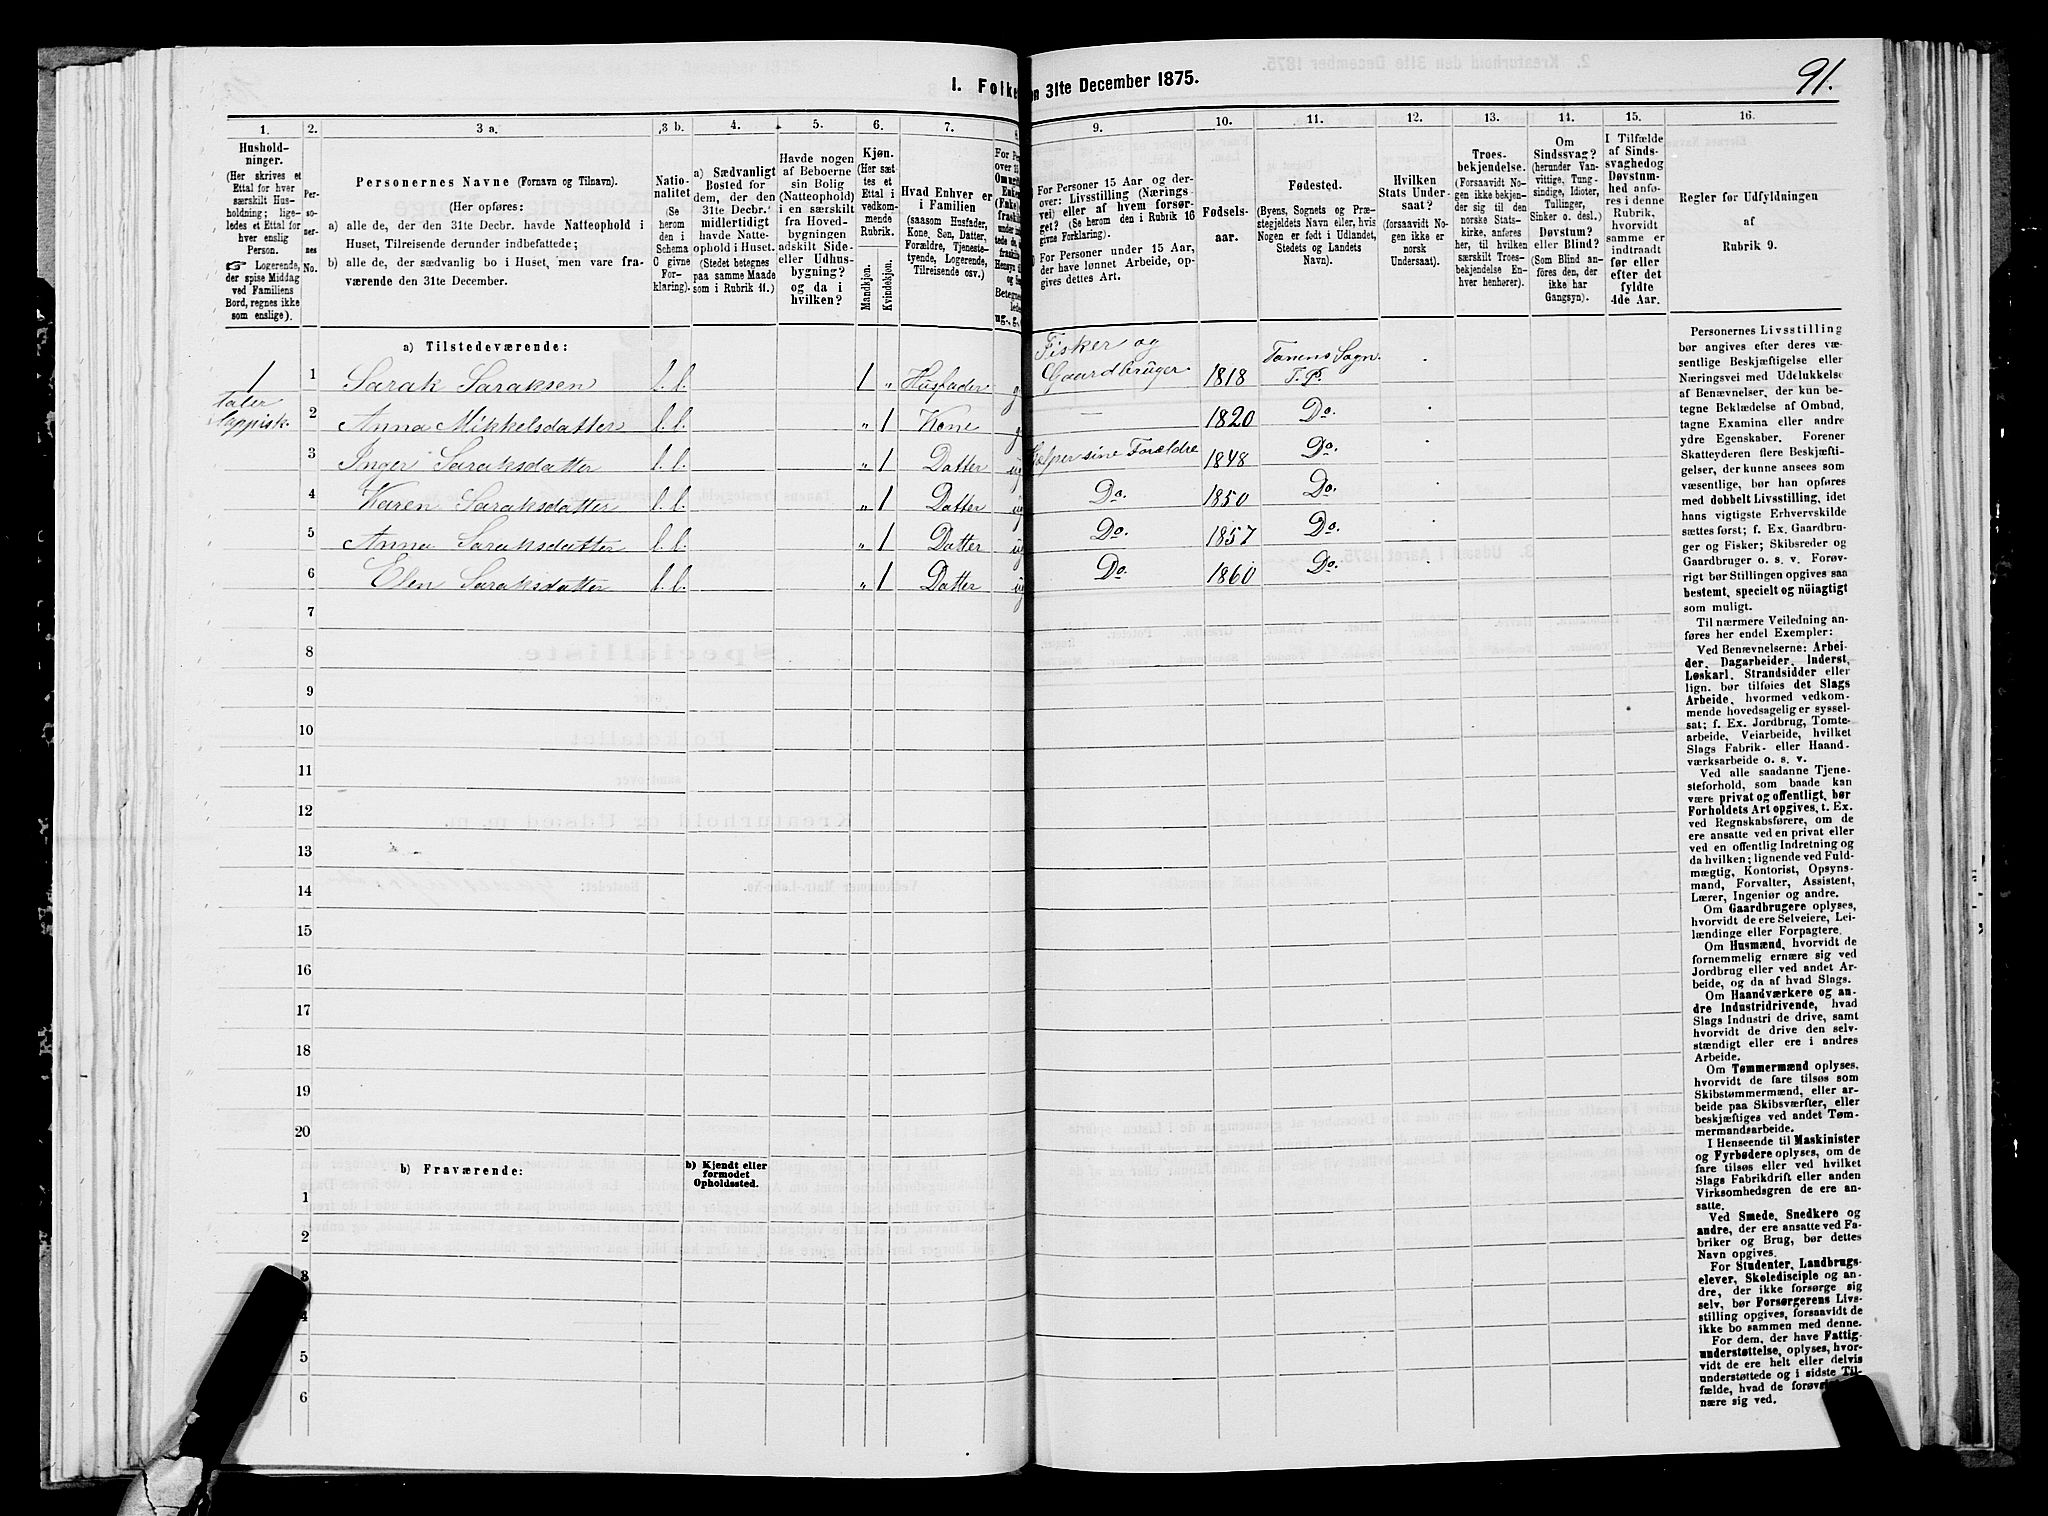 91.
I. Folke
en 31te December 1875.
1.
2.
3 a.
3 b.
4.
5.
6.
7.
8.
9.
10.
11.
12.
13.
14.
15.
16.
Hushold-
ninger.
(Her skrives et
Ettal for hver
særskilt Hus-
holdning; lige-
ledes et Ettal for
hver enslig
Person.
☞ Logerende,
der spise Middag
ved Familiens
Bord, regnes ikke
som enslige).
Per-
so-
ner-
nes
No.
Personernes Navne (Fornavn og Tilnavn).
(Her opføres:
a) alle de, der den 31te Decbr. havde Natteophold i
Huset, Tilreisende derunder indbefattede;
b) alle de, der sædvanlig bo i Huset, men vare fra-
værende den 31te December.
Natio-
nalitet
(Se
herom
den i
Schema
C givne
For-
klaring).
a) Sædvanligt
Bosted for
dem, der den
31te Decbr.
midlertidigt
havde Natte-
ophold i Huset.
(Stedet betegnes
paa samme Maade
som i Rubrik 11.)
Havde nogen
af Beboerne
sin Bolig
(Natteophold)
i en særskilt
fra Hoved-
bygningen
adskilt Side-
eller Udhus-
bygning?
og da i
hvilken?
Kjøn.
(Her sæt-
tes et
Ettal i
vedkom-
mende
Rubrik.
Mandkjøn.
Kvindekjøn.
Hvad Enhver er
i Familien
(saasom Husfader,
Kone, Søn, Datter,
Forældre, Tjeneste-
tyende, Logerende,
Tilreisende osv.)
For Pe
over 15
ug., g.,
For Personer 15 Aar og der-
over: Livsstilling (Nærings-
vei) eller af hvem forsør-
get? (Se herom den i Rubrik 16
givne Forklaring.)
For Personer under 15 Aar,
der have lønnet Arbeide, op-
gives dettes Art.
Fødsels-
aar.
Fødested.
(Byens, Sognets og Præ-
stegjeldets Navn eller, hvis
Nogen er født i Udlandet,
Stedets og Landets
Navn).
Hvilken
Stats Under-
saat?
(forsaavidt No-
gen ikke er
norsk
Undersaat).
Troes-
bekjendelse.
(Forsaavidt No-
gen ikke bekjen-
der sig til den
norske Stats-
kirke, anføres
her, til hvilken
særskilt Troes-
bekjendelse En-
hver henhører).
Om
Sindssvag?
(herunder Van-
vittige, Tung-
sindige, Idioter,
Tullinger,
Sinker o. desl.)
Døvstum?
eller Blind?
(Som Blind an-
føres de, der
ikke har
Gangsyn).
I Tilfælde
af Sinds-
svaghedog
Døvstum-
hed anfø-
res i denne
Rubrik,
hvorvidt
samme er
indtraadt
før eller
efter det
fyldte
4de Aar.
Regler for Udfyldningen
af
Rubrik 9.
a) Tilstedeværende:
1 1 Sarak Saraksen l. l. 1 „ Husfader g Fisker og Gaardbruger 1818 Tanens Sogn. T. P.
taler lappisk. 2 Anna Mikkelsdatter l. l. „ 1 Kone g — 1820 Do.
3 Inger Saraksdatter l. l. „ 1 Datter ug Hjælper sine Forældre 1848 Do.
4 Karen Saraksdatter l. l. „ 1 Datter ug Do. 1850 Do.
5 Anna Saraksdatter l. l. „ 1 Datter ug Do. 1857 Do.
6 Elen Saraksdatter l. l. „ 1 Datter ug Do. 1860 Do.
7
8
9
10
11
12
13
14
15
16
17
18
19
20
b) Fraværende:
b) Kjendt eller
formodet
Opholdssted.
1
2
3
4
5
6
Personernes Livsstilling
bør angives efter deres væ-
sentlige Beskjæftigelse eller
Næringsvei med Udelukkelse
af Benævnelser, der kun be-
tegne Beklædelse af Ombud,
tagne Examina eller andre
ydre Egenskaber. Forener
Skatteyderen flere Beskjæfti-
gelser, der kunne ansees som
væsentlige, bør han opføres
med dobbelt Livsstilling, idet
hans vigtigste Erhvervskilde
sættes først; f. Ex. Gaardbru-
ger og Fisker; Skibsreder og
Gaardbruger o. s. v. Forøv-
rigt bør Stillingen opgives saa
bestemt, specielt og nöiagtigt
som muligt.
Til nærmere Veiledning an-
føres her endel Exempler:
Ved Benævnelserne: Arbei-
der, Dagarbeider, Inderst,
Løskarl, Strandsidder eller
lign. bør tilføies det Slags
Arbeide, hvormed vedkom-
mende hovedsagelig er syssel-
sat; f. Ex. Jordbrug, Tomte-
arbeide, Veiarbeide, hvilket
Slags Fabrik- eller Haand-
værksarbeide o. s. v.
Ved alle saadanne Tjene-
steforhold, som baade kan
være privat og offentligt, bør
Forholdets Art opgives, t. Ex.
ved Regnskabsførere, om de
ere ansatte ved en privat eller
ved en offentlig Indretning og
da hvilken; lignende ved Fuld-
mægtig, Kontorist, Opsyns-
mand, Forvalter, Assistent,
Lærer, Ingeniør og andre.
Om Gaardbrugere oplyses,
hvorvidt de ere Selveiere, Lei-
lændinge eller Forpagtere.
Om Husmænd, hvorvidt de
fornemmelig ernære sig ved
Jordbrug eller ved andet Ar-
beide, og da af hvad Slags.
Om Haandværkere og an-
dre Industridrivende, hvad
Slags Industri de drive, samt
hvorvidt de drive den selv-
stændigt eller ere i andres
Arbeide.
Om Tømmermænd oplyses,
hvorvidt de fare tilsøs som
Skibstømmermænd, eller ar-
beide paa Skibsværfter, eller
beskjæftiges ved andet Tøm-
mermandsarbeide.
I Henseende til Maskinister
og Fyrbødere oplyses, om de
fare tilsøs eller ved hvilket
Slags Fabrikdrift eller anden
Virksomhedsgren de ere an-
satte.
Ved Smede, Snedkere og
andre, der ere ansatte ved Fa-
briker og Brug, bør dettes
Navn opgives.
For Studenter, Landbrugs-
elever, Skoledisciple og an-
dre, der ikke forsørge sig
selv, bør Forsørgerens Livs-
stilling opgives, forsaavidt de
ikke bo sammen med denne.
For dem, der have Fattig-
understøttelse, oplyses, hvor-
vidt de ere helt eller delvis
understøttede og i sidste Til-
fælde, hvad de forøvrigt
nære sig ved.